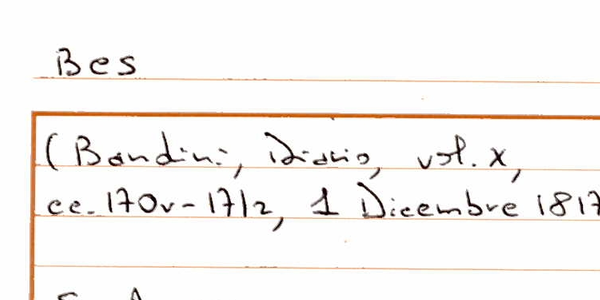 Bes
(Bandini, Diario, vol. X,
cc. 170v-171r, 1 Dicembre 1817